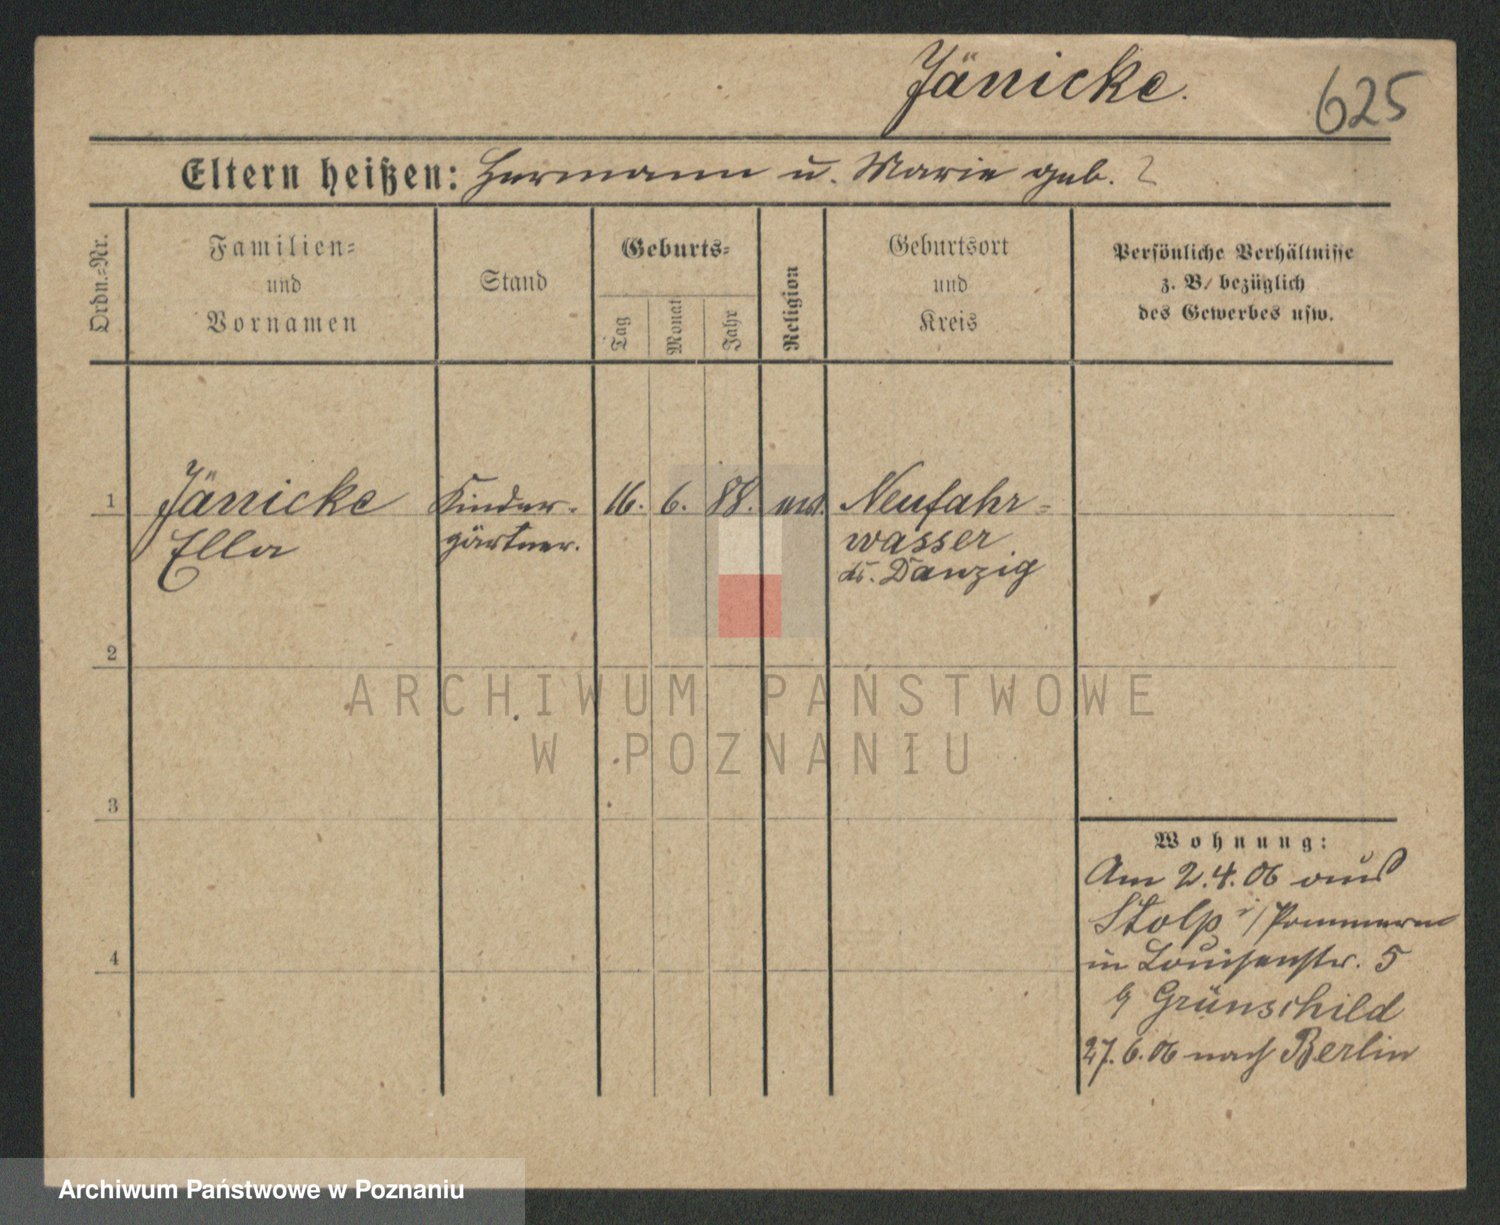 Jänicke.
625
Eltern heißen: Hermann u. Marie geb. ?
Ordn.=Nr.
Familien=
und
Vornamen
Stand
Geburts=
Tag
Monat
Jahr
Religion
Geburtsort
und
Kreis
Persönliche Verhältnisse
z. B. bezüglich
des Gewerbes usw.
1
Jänicke
Ella
Kinder-
gärtner.
16. 6. 88.
Neufahr=
wasser
Danzig
2
3
4
ARCHIWUM PAŃSTWOWE
W POZNANIU
Wohnung:
Am 2.4.06 aus
Stolp i/Pommern
in Louisenstr. 5
Grünschild
27.6.06 nach Berlin
Archiwum Państwowe w Poznaniu